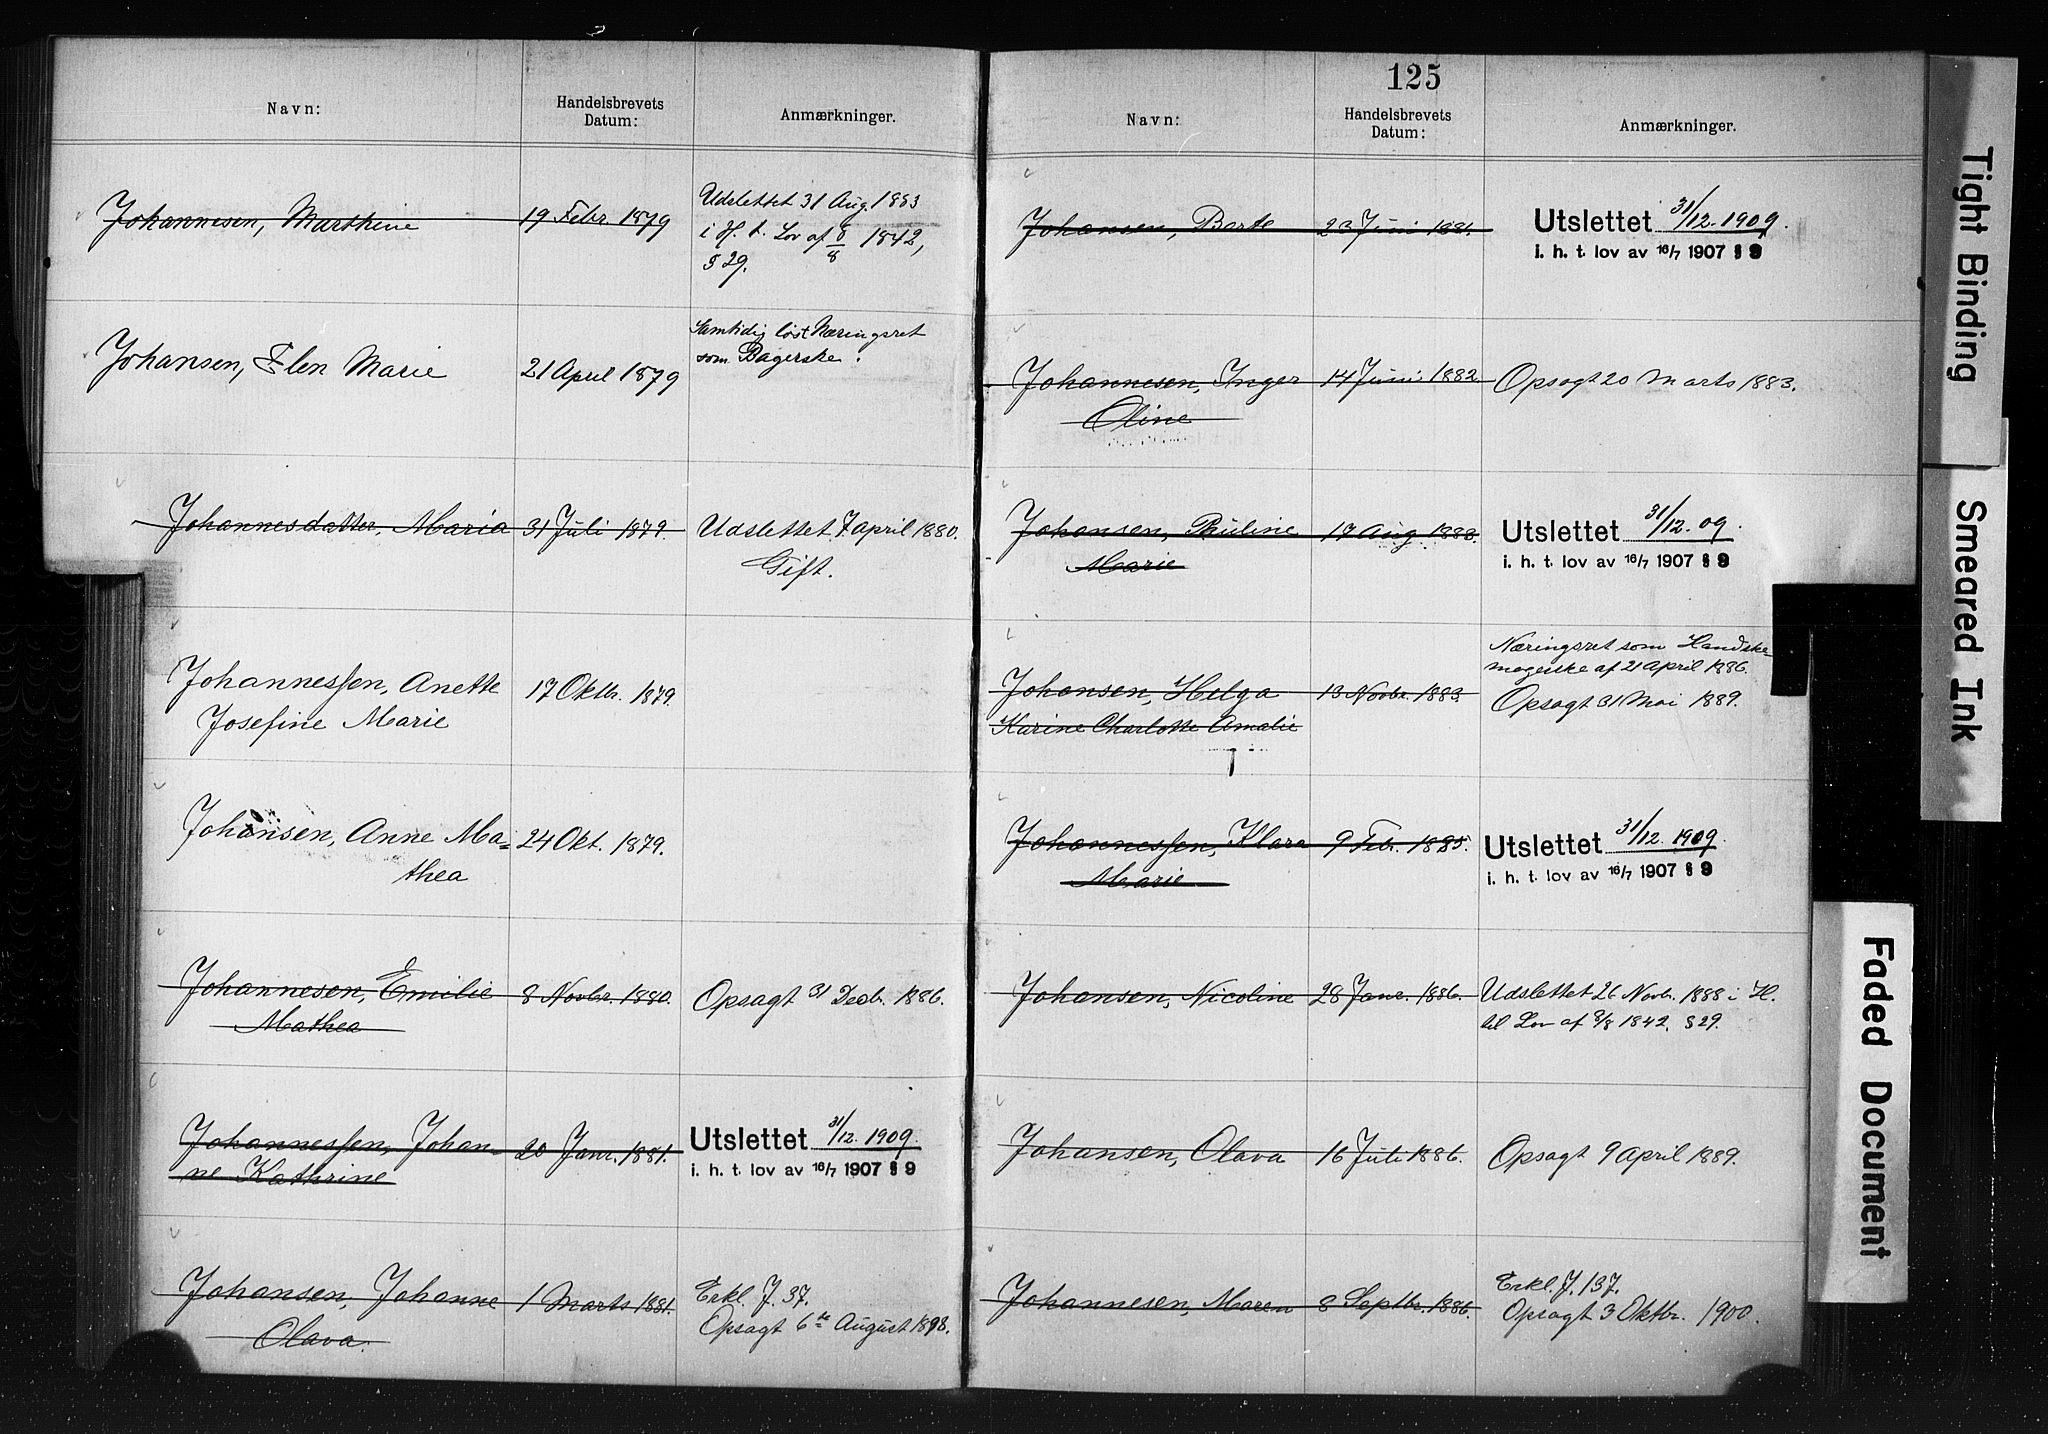 Navn:
Handelsbrevets
Datum:
Anmærkninger.
Johannesen, Marthine
19 Febr. 1879
Udslettet 31 Aug. 1883
i H. t. Lov af 8/8 1842,
§ 29.
Johansen, Elen Marie
21 April 1879
Samtidig løst Næringsret
som Bagerske.
Johannesdatter, Maria
31 Juli 1879.
Udslettet 7 april 1880.
Gift.
Johannessen, Anette
Josefine Marie
17 Oktbr. 1879.
Johansen, Anne Ma=
thea
24 Okt. 1879.
Johannesen, Emilie
Mathea
8 Novbr. 1880.
Opsagt 31 Decbr. 1886.
Johannessen, Johan=
ne Kathrine
20 Janr. 1881.
Utslettet 31/12. 1909.
i. h. t. lov av 16/7 1907 § 9
Johansen, Johanne
Olava.
1 Marts 1881.
Erkl. J. 37.
Opsagt 6te August 1898.
125
Navn:
Handelsbrevets
Datum:
Anmærkninger.
Johansen, Berte
23 Juni 1881.
Utslettet 31/12. 1909.
i. h. t. lov av 16/7 1907 § 9
Johannesen, Inger
Oline
14 Juni 1882.
Opsagt 20 Marts 1883.
Johansen, Pauline
Marie
17 Aug. 1883.
Utslettet 31/12. 09.
i. h. t. lov av 16/7 1907 § 9
Johansen, Helga
Karine Charlotte Amalie
13 Novbr. 1883.
Næringsret som Handske=
magerske af 21 april 1886.
Opsagt 31 Mai 1889.
Johannessen, Klara
Marie
9 Feb. 1885.
Utslettet 31/12. 1909.
i. h. t. lov av 16/7 1907 § 9
Johansen, Nicoline
28 Janr. 1886.
Udslettet 26 Novbr. 1888 i H.
til Lov af 8/8 1842. § 29.
Johansen, Olava
16 Juli 1886.
Opsagt 9 april 1889.
Johannesen, Maren
8 Septbr. 1886.
Erkl. J. 137.
Opsagt 3 Oktbr. 1900.
Tight Binding
Smeared Ink
Faded Document